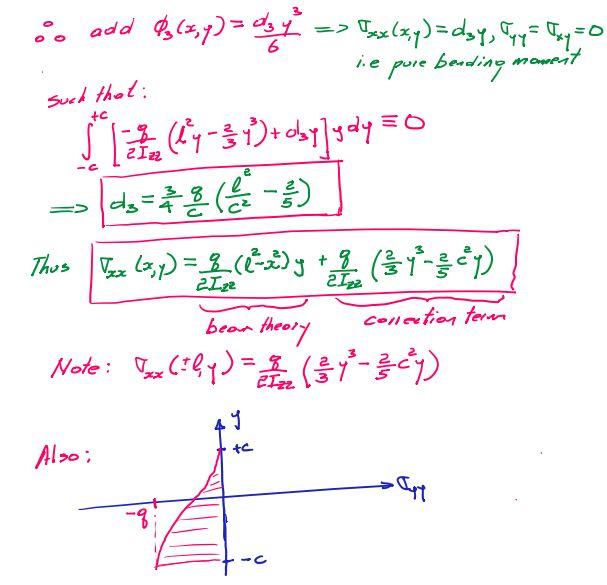 ∴ add ϕ₃(x,y) = d₃y³/6 ⟹ σxx(x,y) = d₃y, σyy = σxy = 0
i.e pure bending moment
such that:
∫_{-c}^{+c} [-q/2Izz (l²y - 2/3 y³) + d₃y] y dy ≡ 0
⟹ d₃ = 3/4 q/c (l²/c² - 2/5)
Thus σxx(x,y) = q/2Izz (l²-x²) y + q/2Izz (2/3 y³ - 2/5 c²y)
beam theory correction term
Note: σxx(±l,y) = q/2Izz (2/3 y³ - 2/5 c²y)
Also:
y
+c
σyy
-q
-c